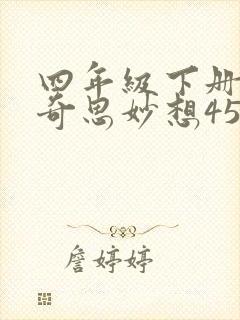 四年级下册
奇思妙想45
詹婷婷